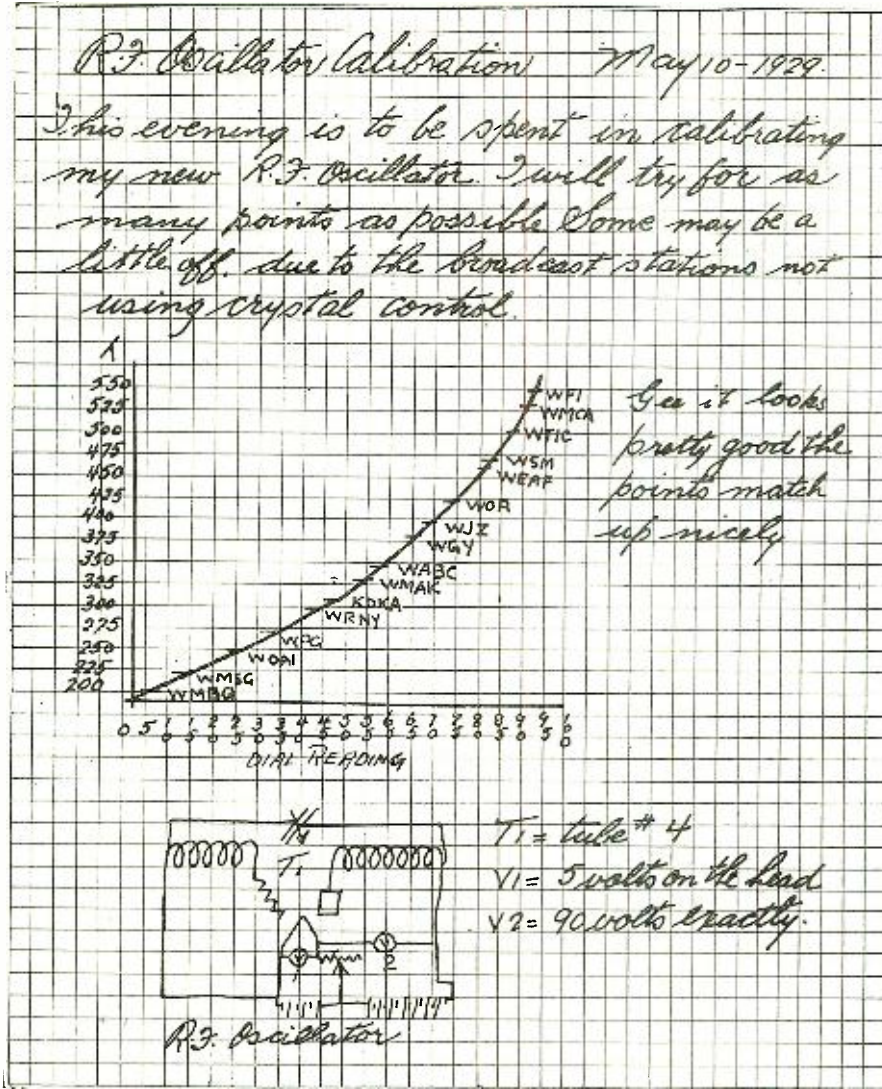 R.F. Oscillator Calibration May 10-1929.
This evening is to be spent in calibrating
my new R.F. Oscillator. I will try for as
many points as possible Some may be a
little off. due to the broadcast stations not
using crystal control.
λ
550
525
500
475
450
425
400
375
350
325
300
275
250
225
200
WFI
WMCA
WTIC
WSM
WEAF
WOR
WJZ
WGY
WABC
WMAK
KDKA
WRNY
WPG
WOAI
WMSG
WMBQ
Gee it looks
pretty good the
points match
up nicely
0 5 10 15 20 25 30 35 40 45 50 55 60 65 70 75 80 85 90 95 100
DIAL READING
T1
V
1
V
2
T1 = tube # 4
V1 = 5 volts on the head
V2 = 90 volts exactly.
R.F. Oscillator